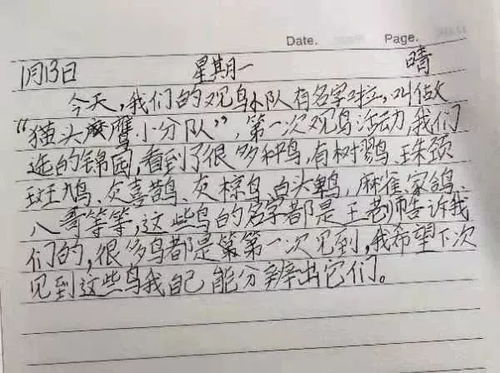 Date. Page.
1月13日 星期一 晴
今天,我们的观鸟小队有名字啦,叫做
“猫头鹰小分队”,第一次观鸟活动,我们
选的锦园,看到了很多种鸟,有树鹨、珠颈
斑鸠、灰喜鹊、灰椋鸟、白头鹎、麻雀、家鸽、
八哥等等,这些鸟的名字都是王老师告诉我
们的,很多鸟都是第一次见到,我希望下次
见到这些鸟我自己能分辨出它们。